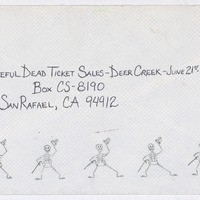 EFUL DEAD TICKET SALES-DEER CREEK-JUNE 21ST
BOX CS-8190
SAN RAFAEL, CA 94912